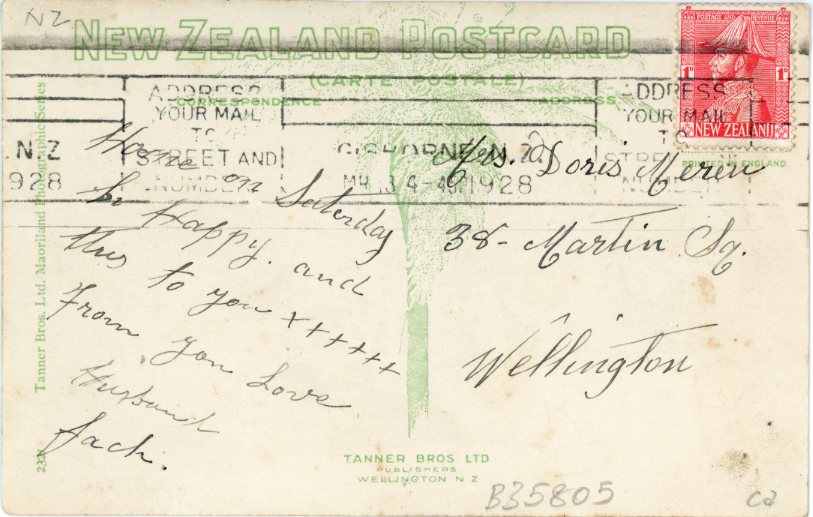 NZ
NEW ZEALAND POSTCARD
(CARTE POSTALE)
CORRESPONDENCE
ADDRESS
ADDRESS
YOUR MAIL
TO
STREET AND
NUMBER
N.Z
1928
GISBORNE N.Z
4-
1928
ADDRESS
YOUR MAIL
TO
STREET
NUMBER
POSTAGE AND REVENUE
1D
1D
NEW ZEALAND
PRINTED IN ENGLAND.
Home on Saterday
be Happy. and
this to you xxxxxx
From you Love
Husband
Jack.
Mrs. Doris Meren
38- Martin Sq.
Wellington
Tanner Bros. Ltd. Maoriland Photographic Series
TANNER BROS LTD
PUBLISHERS
WELLINGTON N Z
B35805